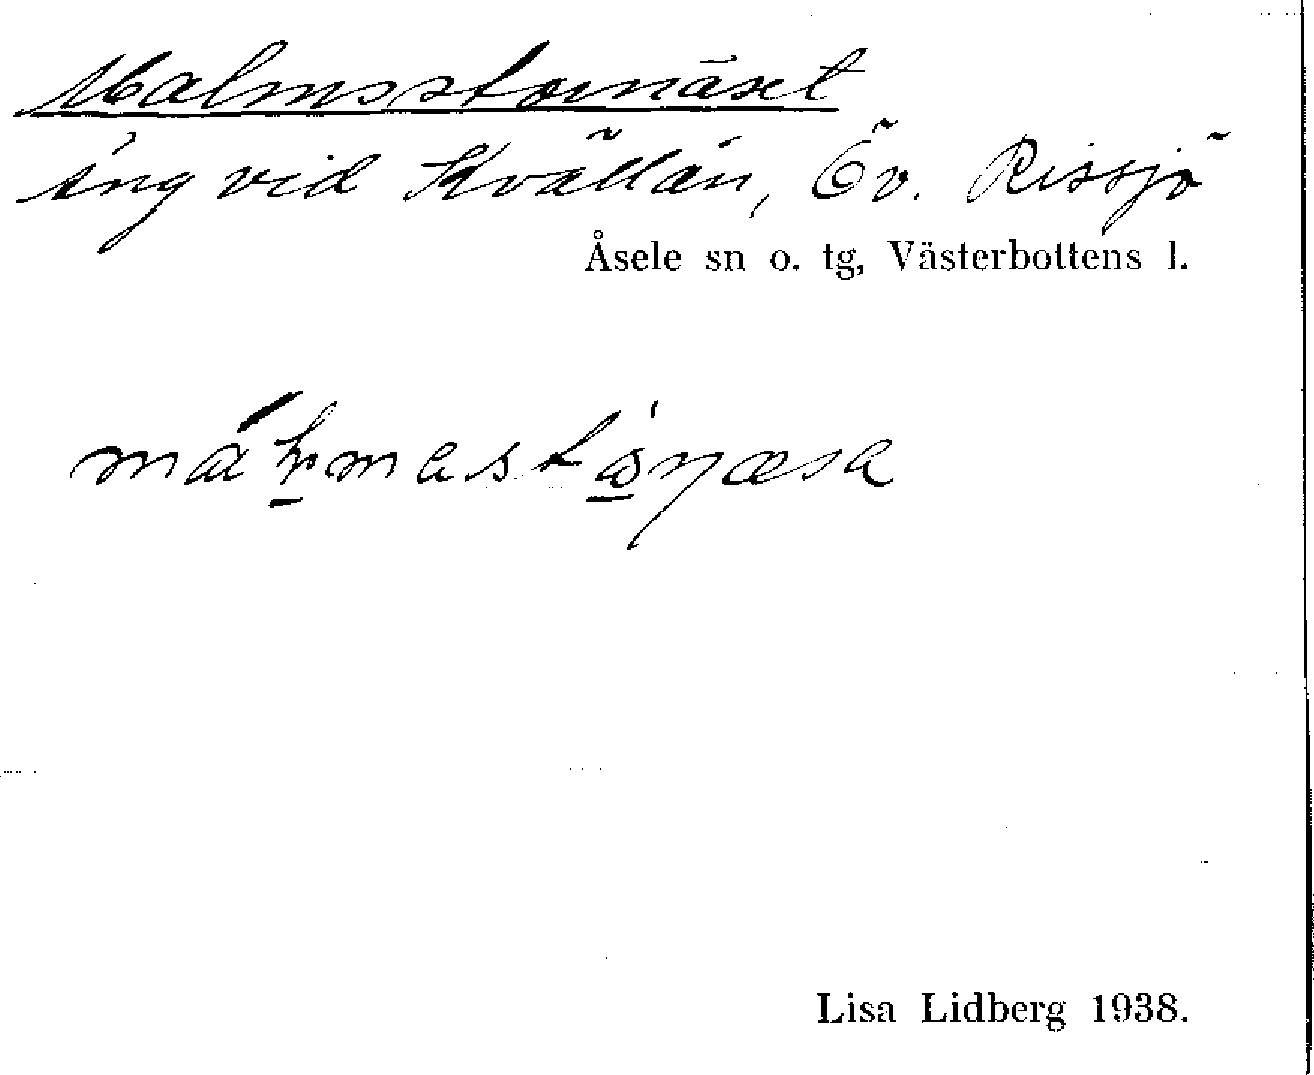 Malmsstornäset
äng vid Kvällån, Öv. Rissjö
Åsele sn o. tg, Västerbottens l.
Lisa Lidberg 1938.